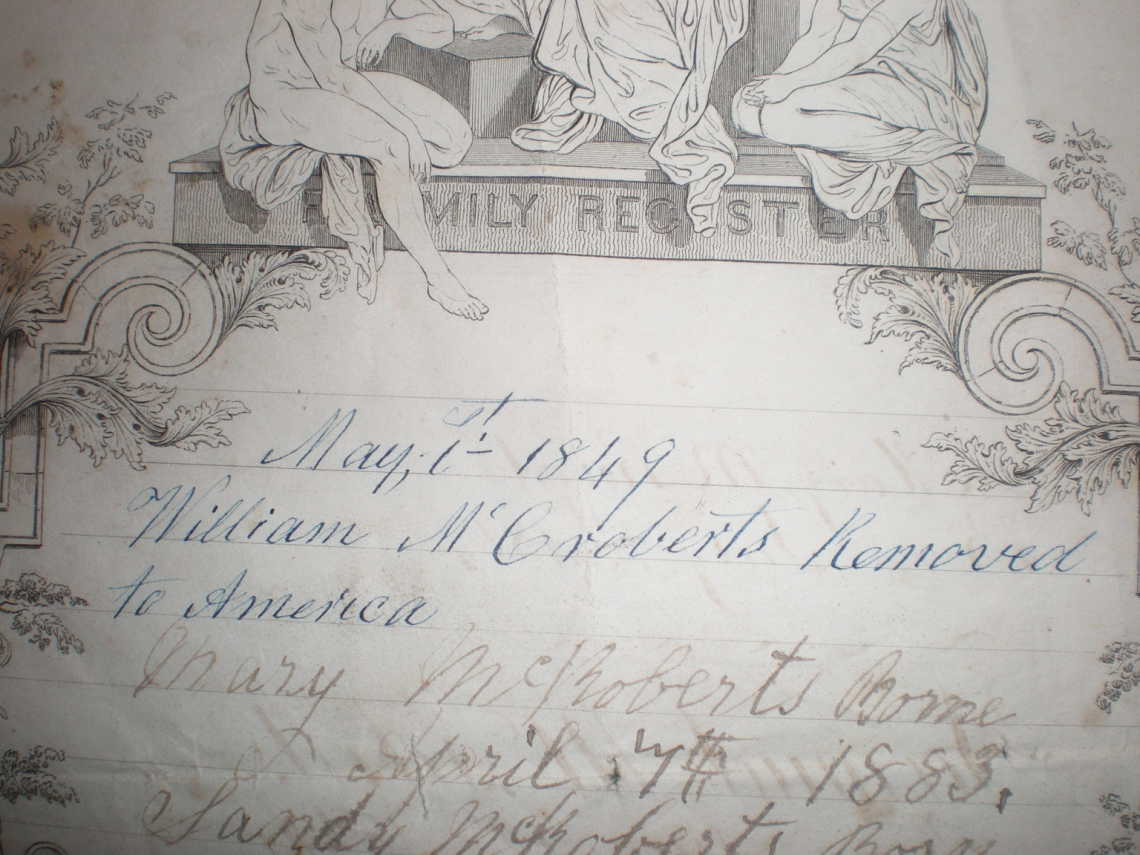 FAMILY REGISTER
May, 1st 1849
William McCroberts Removed
to America
Mary McRoberts Borne
April 7th 1883.
Sandy McRoberts Born